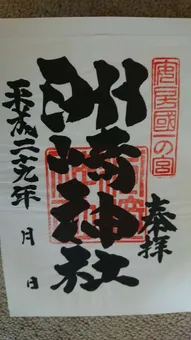 安房國一の宮
奉拝
洲崎神社
平成二十九年 月 日